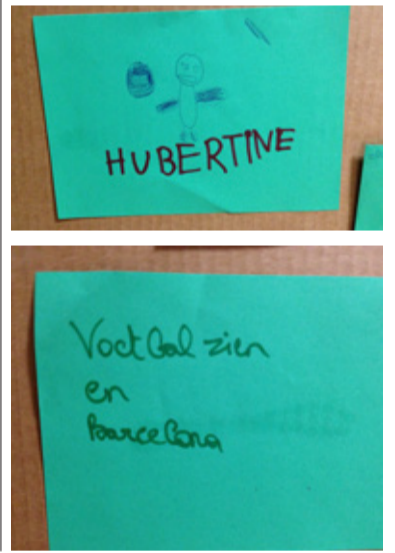 HUBERTINE
Voetbal zien
en
Barcelona